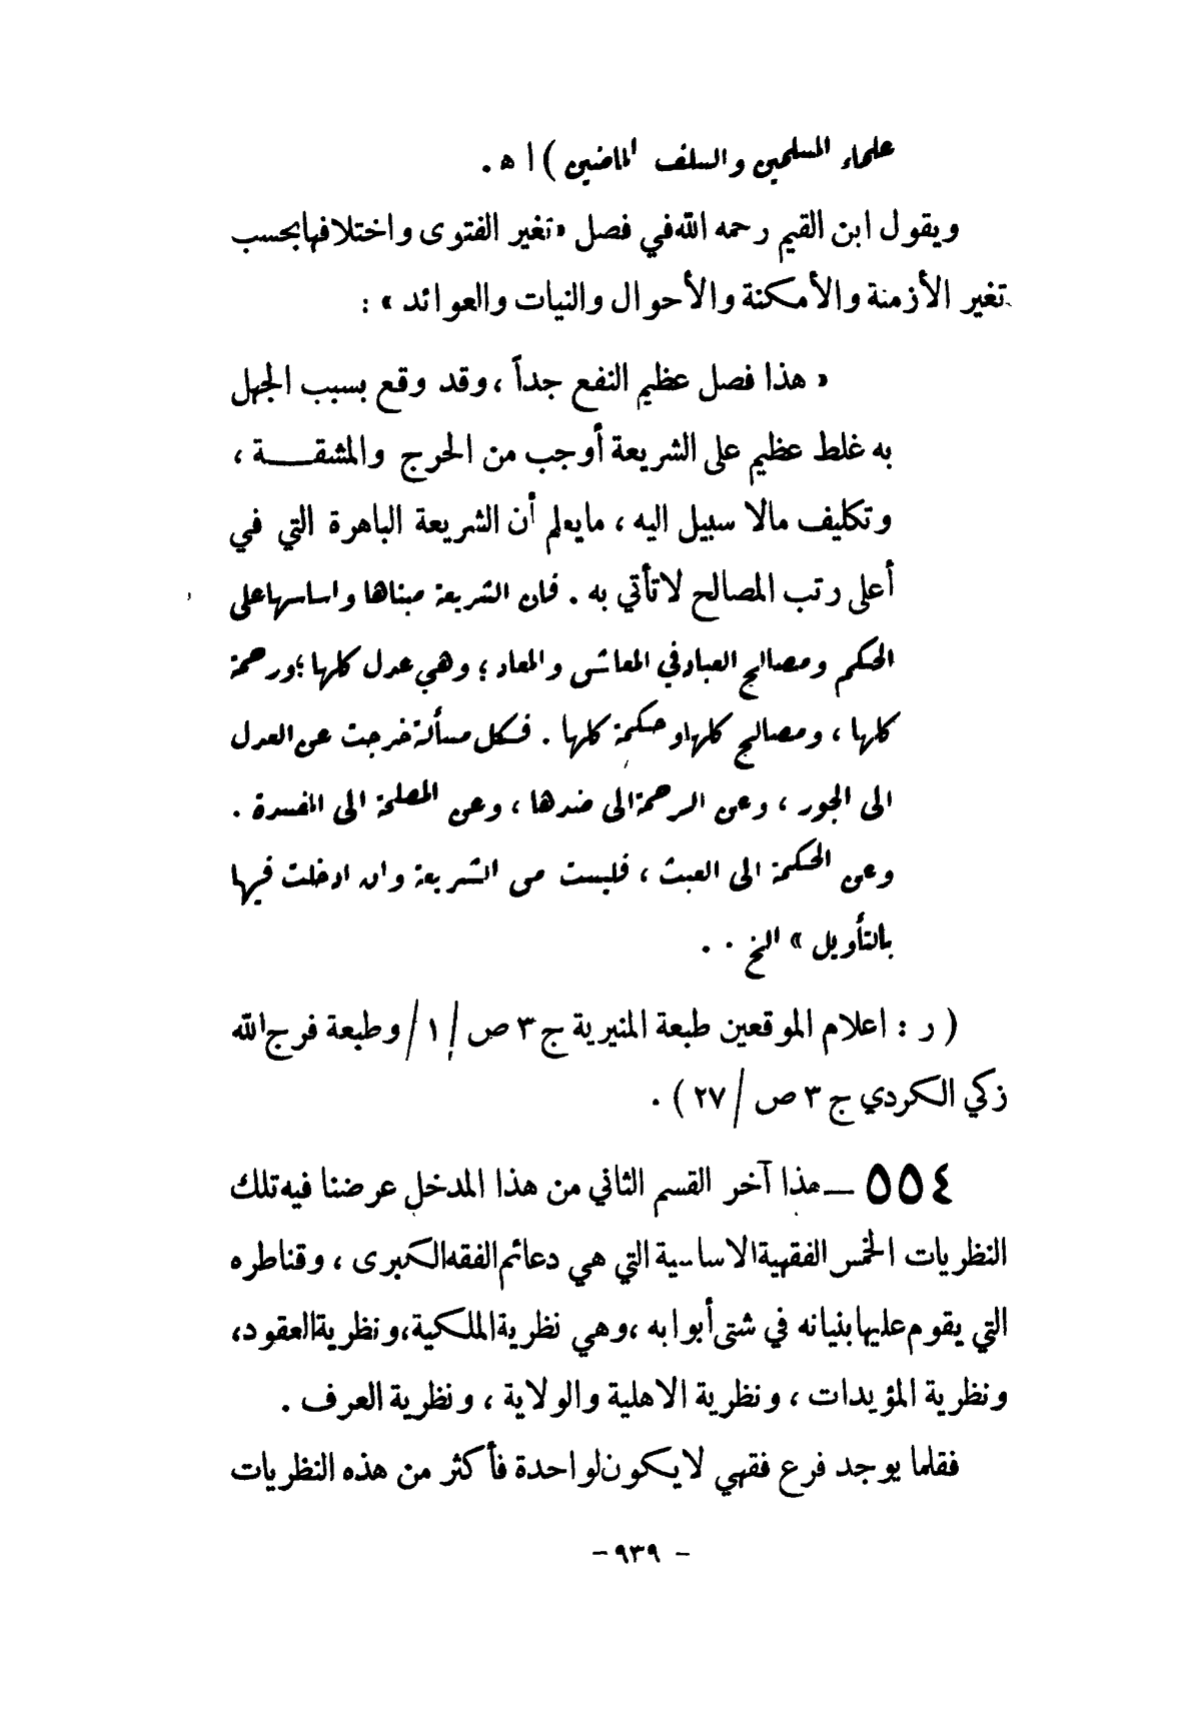 علماء المسلمين والسلف الماضين ) ا ه .
ويقول ابن القيم رحمه الله في فصل « تغير الفتوى واختلافها بحسب
تغير الأزمنة والأمكنة والأحوال والنيات والعوائد » :
« هذا فصل عظيم النفع جداً ، وقد وقع بسبب الجهل
به غلط عظيم على الشريعة أوجب من الحرج والمشقــة ،
وتكليف مالا سبيل اليه ، مايعلم أن الشريعة الباهرة التي في
أعلى رتب المصالح لا تأتي به . فان الشريعة مبناها واساسها على
الحكم ومصالح العباد في المعاش والمعاد ؛ وهي عدل كلها ؛ ورحمة
كلها ، ومصالح كلها وحكمة كلها . فكل مسألة خرجت عن العدل
الى الجور ، وعن الرحمة الى ضدها ، وعن المصلحة الى المفسدة .
وعن الحكمة الى العبث ، فليست من الشريعة وان ادخلت فيها
بالتأويل » الخ . .
( ر : اعلام الموقعين طبعة المنيرية ج ٣ ص /١/ وطبعة فرج الله
زكي الكردي ج ٣ ص / ٢٧ ) .
٥٥٤ — هذا آخر القسم الثاني من هذا المدخل عرضنا فيه تلك
النظريات الخمس الفقهية الاساسية التي هي دعائم الفقه الكبرى ، وقناطره
التي يقوم عليها بنيانه في شتى أبوابه ، وهي نظرية الملكية ، ونظرية العقود ،
ونظرية المؤيدات ، ونظرية الاهلية والولاية ، ونظرية العرف .
فقلما يوجد فرع فقهي لا يكون لواحدة فأكثر من هذه النظريات
- ٩٣٩ -